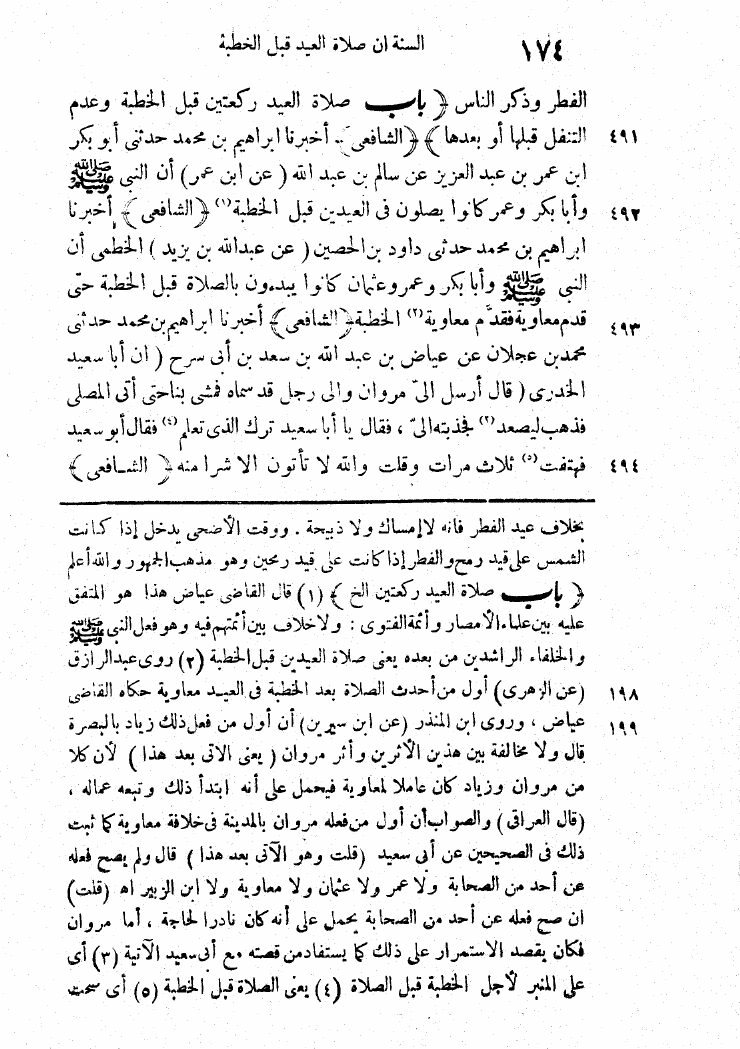 ١٧٤ السنة ان صلاة العيد قبل الخطبة
الفطر وذكر الناس ﴿ باب صلاة العيد ركعتين قبل الخطبة وعدم
٤٩١ التنفل قبلها أو بعدها ﴾ ﴿ الشافعى ﴾ أخبرنا ابراهيم بن محمد حدثنى أبو بكر
ابن عمر بن عبد العزيز عن سالم بن عبد الله ( عن ابن عمر ) أن النبى ﷺ
٤٩٢ وأبا بكر وعمر كانوا يصلون فى العيدين قبل الخطبة (١) ﴿ الشافعى ﴾ أخبرنا
ابراهيم بن محمد حدثنى داود بن الحصين ( عن عبدالله بن يزيد ) الخطمى أن
النبى ﷺ وأبا بكر وعمر وعثمان كانوا يبدءون بالصلاة قبل الخطبة حتى
٤٩٣ قدم معاوية فقدّم معاوية (٢) الخطبة ﴿ الشافعى ﴾ أخبرنا ابراهيم بن محمد حدثنى
محمد بن عجلان عن عياض بن عبد الله بن سعد بن أبى سرح ( ان أبا سعيد
الخدرى ) قال أرسل الىّ مروان والى رجل قد سماه فمشى بنا حتى أتى المصلى
فذهب ليصعد (٣) فجذبته الىّ ، فقال يا أبا سعيد ترك الذى تعلم (٤) فقال أبو سعيد
٤٩٤ فهتفت (٥) ثلاث مرات وقلت والله لا تأتون الا شرا منه ﴿ الشافعى ﴾
بخلاف عيد الفطر فانه لا إمساك ولا ذبيحة . ووقت الأضحى يدخل إذا كانت
الشمس على قيد رمح والفطر إذا كانت على قيد رمحين وهو مذهب الجمهور والله أعلم
﴿ باب صلاة العيد ركعتين الخ ﴾ (١) قال القاضى عياض هذا هو المتفق
عليه بين علماء الأمصار وأئمة الفتوى : ولا خلاف بين أئمتهم فيه وهو فعل النبى ﷺ
والخلفاء الراشدين من بعده يعنى صلاة العيدين قبل الخطبة (٢) روى عبد الرازق
١٩٨ (عن الزهرى) أول من أحدث الصلاة بعد الخطبة فى العيد معاوية حكاه القاضى
١٩٩ عياض ، وروى ابن المنذر (عن ابن سيرين) أن أول من فعل ذلك زياد بالبصرة
قال ولا مخالفة بين هذين الأثرين وأثر مروان ( يعنى الآتى بعد هذا ) لأن كلا
من مروان وزياد كان عاملا لمعاوية فيحمل على أنه ابتدأ ذلك وتبعه عماله ،
(قال العراقى) والصواب أن أول من فعله مروان بالمدينة فى خلافة معاوية كما ثبت
ذلك فى الصحيحين عن أبى سعيد (قلت وهو الآتى بعد هذا ) قال ولم يصح فعله
عن أحد من الصحابة ولا عمر ولا عثمان ولا معاوية ولا ابن الزبير اه (قلت)
ان صح فعله عن أحد من الصحابة يحمل على أنه كان نادرا لحاجة ، أما مروان
فكان يقصد الاستمرار على ذلك كما يستفاد من قصته مع أبى سعيد الآتية (٣) أى
على المنبر لأجل الخطبة قبل الصلاة (٤) يعنى الصلاة قبل الخطبة (٥) أى صحت